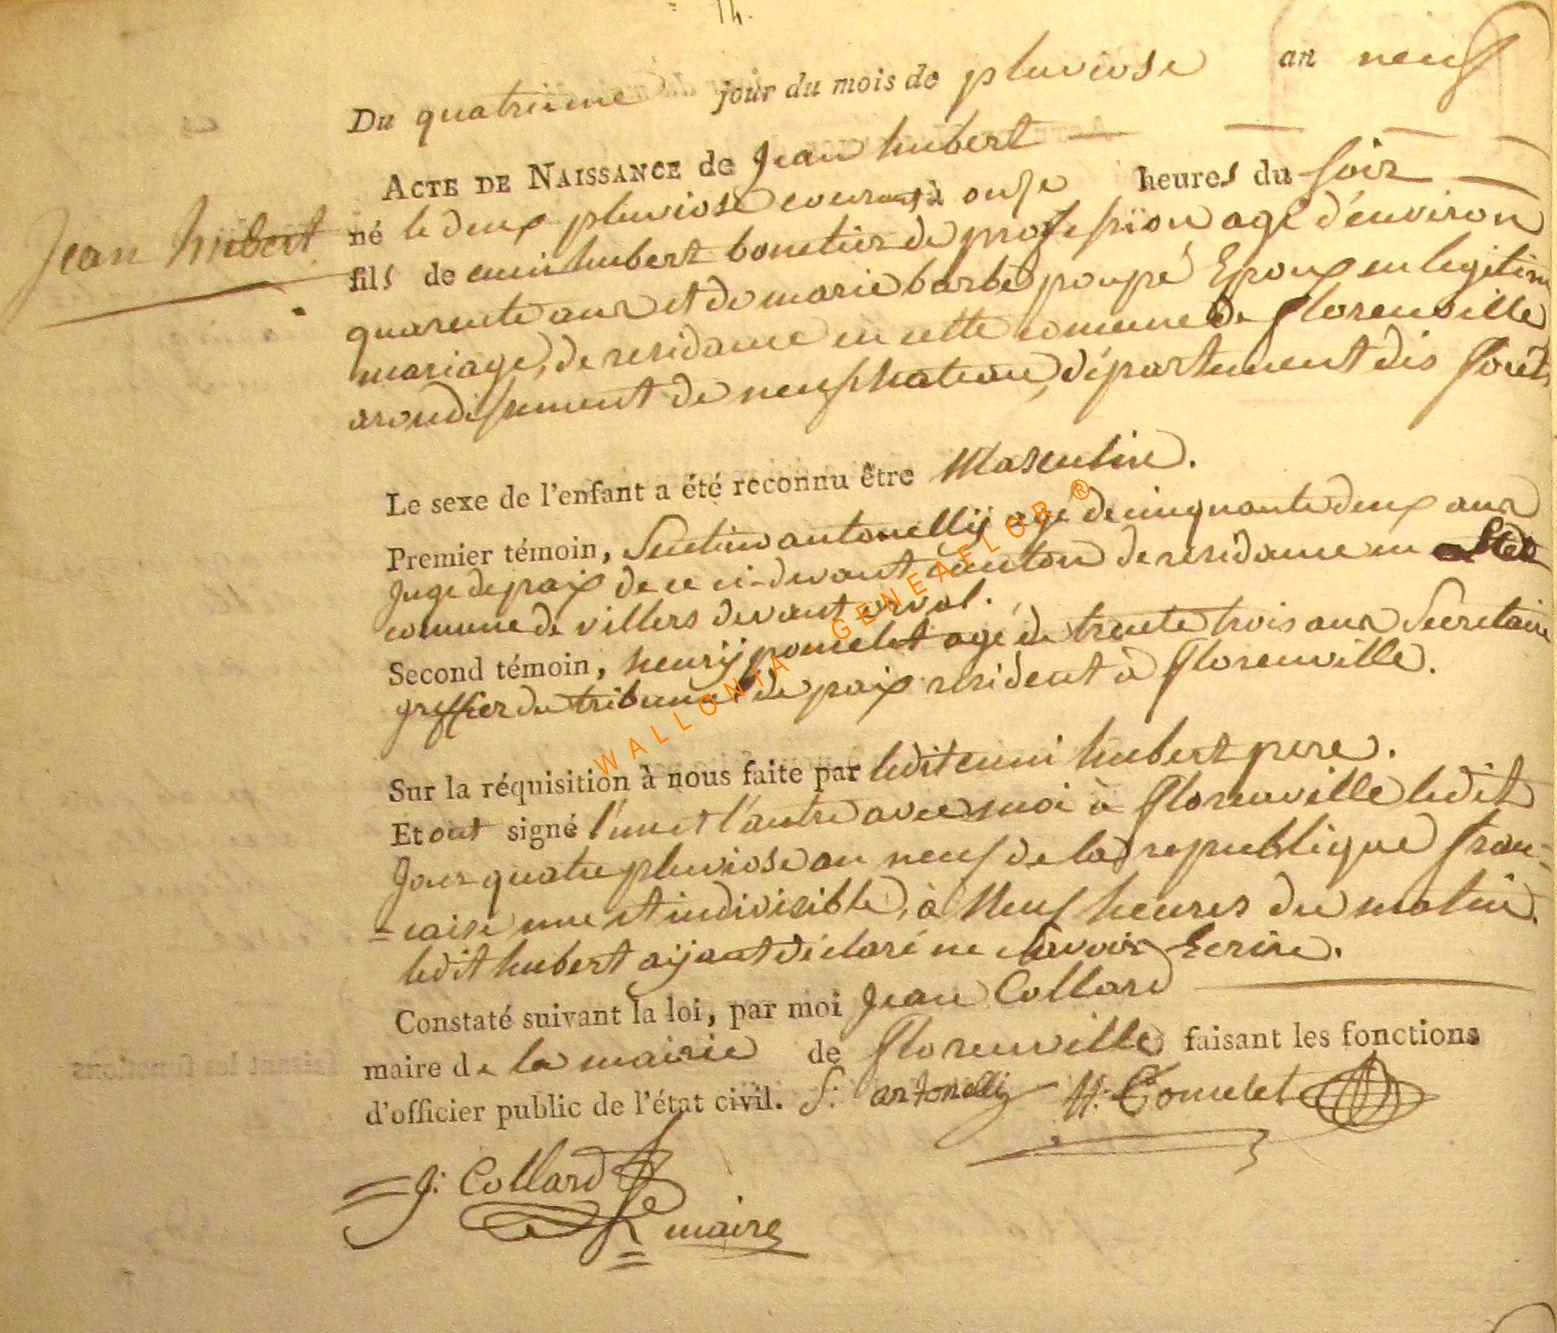 Du quatrieme jour du mois de pluviose an neuf
ACTE DE NAISSANCE de Jean hubert
Jean hubert
né le deux pluviose courant à onse heures du soir
fils de hubert bonetier de profession agé d'environ
quarente ans et de marie barbe poupé Epoux en legitim
mariage, de residance en cette comune de florenville
arondissement de neufchateau, département des forêts
Le sexe de l'enfant a été reconnu être Masculin.
Premier témoin, antonellÿ agé de cinquante deux ans
Juge de paix de ce ci-devant canton de residance en
comune de villers devant orval.
Second témoin, henrÿ agé de trente trois ans Secretaire
greffier du tribunal de paix resident à florenville.
Sur la réquisition à nous faite par ledit hubert pere.
Et ont signé l'un et l'autre avec moi à florenville ledit
Jour quatre pluviose an neuf de la republique fran-
=caise une et indivisible, à Neuf heures du matin.
ledit hubert aÿant déclaré ne savoir Ecrire.
Constaté suivant la loi, par moi Jean Collard
maire de la mairie de florenville faisant les fonctions
d'officier public de l'état civil. S: antonellÿ H:
J: Collard
maire
WALLONIA GENEAFLOR ®